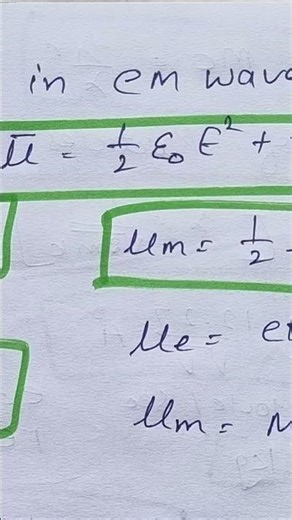 in em wav
ū = 1/2 ε₀ E² +
um = 1/2
ue = e
um =